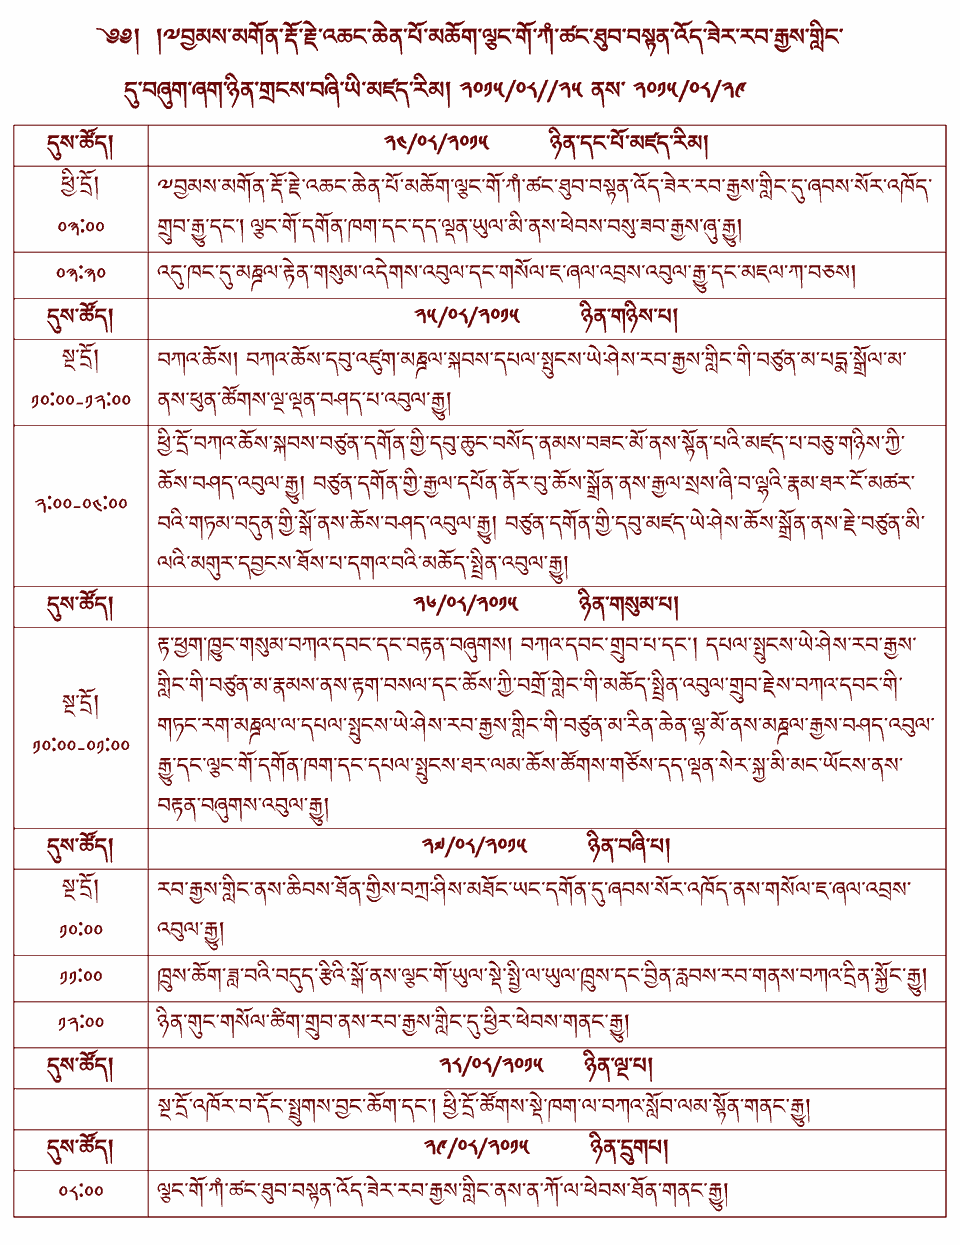 ༄༅། །༧བྱམས་མགོན་རྡོ་རྗེ་འཆང་ཆེན་པོ་མཆོག་ལྕང་གོ་ཀཾ་ཚང་ཐུབ་བསྟན་འོད་ཟེར་རབ་རྒྱས་གླིང་
དུ་བཞུག་ཞག་ཉིན་གྲངས་བཞི་ཡི་མཛད་རིམ། ༢༠༡༥/༠༨//༢༥ ནས་ ༢༠༡༥/༠༨/༢༩
དུས་ཚོད། ༢༤/༠༨/༢༠༡༥ ཉིན་དང་པོ་མཛད་རིམ།
ཕྱི་དྲོ། ༧བྱམས་མགོན་རྡོ་རྗེ་འཆང་ཆེན་པོ་མཆོག་ལྕང་གོ་ཀཾ་ཚང་ཐུབ་བསྟན་འོད་ཟེར་རབ་རྒྱས་གླིང་དུ་ཞབས་སོར་འཁོད་
༠༣:༠༠ གྲུབ་རྒྱུ་དང་། ལྕང་གོ་དགོན་ཁག་དང་དད་ལྡན་ཡུལ་མི་ནས་ཕེབས་བསུ་ཟབ་རྒྱས་ཞུ་རྒྱུ།
༠༣:༣༠ འདུ་ཁང་དུ་མཎྜལ་རྟེན་གསུམ་འདེགས་འབུལ་དང་གསོལ་ཇ་ཞལ་འབྲས་འབུལ་རྒྱུ་དང་མཇལ་ཀ་བཅས།
དུས་ཚོད། ༢༥/༠༨/༢༠༡༥ ཉིན་གཉིས་པ།
སྔ་དྲོ། བཀའ་ཆོས། བཀའ་ཆོས་དབུ་འཛུག་མཎྜལ་སྐབས་དཔལ་སྤུངས་ཡེ་ཤེས་རབ་རྒྱས་གླིང་གི་བཙུན་མ་པདྨ་སྒྲོལ་མ་
༡༠:༠༠-༡༢:༠༠ ནས་ཕུན་ཚོགས་ལྔ་ལྡན་བཤད་པ་འབུལ་རྒྱུ།
ཕྱི་དྲོ་བཀའ་ཆོས་སྐབས་བཙུན་དགོན་གྱི་དབུ་ཆུང་བསོད་ནམས་བཟང་མོ་ནས་སྟོན་པའི་མཛད་པ་བཅུ་གཉིས་ཀྱི་
ཆོས་བཤད་འབུལ་རྒྱུ། བཙུན་དགོན་གྱི་རྒྱལ་དཔོན་ནོར་བུ་ཆོས་སྒྲོན་ནས་རྒྱལ་སྲས་ཞི་བ་ལྷའི་རྣམ་ཐར་ངོ་མཚར་
༢:༠༠-༠༤:༠༠ བའི་གཏམ་བདུན་གྱི་སྒོ་ནས་ཆོས་བཤད་འབུལ་རྒྱུ། བཙུན་དགོན་གྱི་དབུ་མཛད་ཡེ་ཤེས་ཆོས་སྒྲོན་ནས་རྗེ་བཙུན་མི་
ལའི་མགུར་དབྱངས་ཐོས་པ་དགའ་བའི་མཆོད་སྤྲིན་འབུལ་རྒྱུ།
དུས་ཚོད། ༢༦/༠༨/༢༠༡༥ ཉིན་གསུམ་པ།
རྟ་ཕྱག་ཁྱུང་གསུམ་བཀའ་དབང་དང་བརྟན་བཞུགས། བཀའ་དབང་གྲུབ་པ་དང་། དཔལ་སྤུངས་ཡེ་ཤེས་རབ་རྒྱས་
སྔ་དྲོ། གླིང་གི་བཙུན་མ་རྣམས་ནས་རྟག་བསལ་དང་ཆོས་ཀྱི་བགྲོ་གླེང་གི་མཆོད་སྤྲིན་འབུལ་གྲུབ་རྗེས་བཀའ་དབང་གི་
༡༠:༠༠-༠༡:༠༠ གཏང་རག་མཎྜལ་ལ་དཔལ་སྤུངས་ཡེ་ཤེས་རབ་རྒྱས་གླིང་གི་བཙུན་མ་རིན་ཆེན་ལྷ་མོ་ནས་མཎྜལ་རྒྱས་བཤད་འབུལ་
རྒྱུ་དང་ལྕང་གོ་དགོན་ཁག་དང་དཔལ་སྤུངས་ཐར་ལམ་ཆོས་ཚོགས་གཙོས་དད་ལྡན་སེར་སྐྱ་མི་མང་ཡོངས་ནས་
བརྟན་བཞུགས་འབུལ་རྒྱུ།
དུས་ཚོད། ༢༧/༠༨/༢༠༡༥ ཉིན་བཞི་པ།
སྔ་དྲོ། རབ་རྒྱས་གླིང་ནས་ཆིབས་ཐོན་གྱིས་བཀྲ་ཤིས་མཐོང་ཡང་དགོན་དུ་ཞབས་སོར་འཁོད་ནས་གསོལ་ཇ་ཞལ་འབྲས་
༡༠:༠༠ འབུལ་རྒྱུ།
༡༡:༠༠ ཁྲུས་ཆོག་ཟླ་བའི་བདུད་རྩིའི་སྒོ་ནས་ལྕང་གོ་ཡུལ་སྡེ་སྤྱི་ལ་ཡུལ་ཁྲུས་དང་བྱིན་རླབས་རབ་གནས་བཀའ་དྲིན་སྐྱོང་རྒྱུ།
༡༢:༠༠ ཉིན་གུང་གསོལ་ཚིག་གྲུབ་ནས་རབ་རྒྱས་གླིང་དུ་ཕྱིར་ཕེབས་གནང་རྒྱུ།
དུས་ཚོད། ༢༨/༠༨/༢༠༡༥ ཉིན་ལྔ་པ།
སྔ་དྲོ་འཁོར་བ་དོང་སྤྲུགས་བྱང་ཆོག་དང་། ཕྱི་དྲོ་ཚོགས་སྡེ་ཁག་ལ་བཀའ་སློབ་ལམ་སྟོན་གནང་རྒྱུ།
དུས་ཚོད། ༢༩/༠༨/༢༠༡༥ ཉིན་དྲུགཔ།
༠༨:༠༠ ལྕང་གོ་ཀཾ་ཚང་ཐུབ་བསྟན་འོད་ཟེར་རབ་རྒྱས་གླིང་ནས་ན་ཀོ་ལ་ཕེབས་ཐོན་གནང་རྒྱུ།